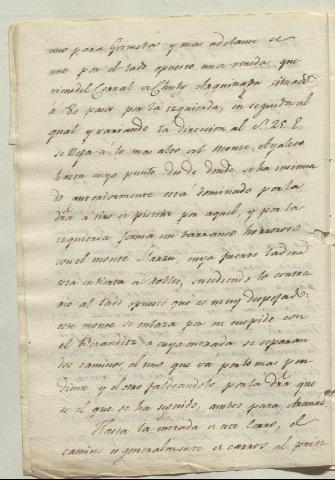 uno para Goizueta y mas adelante se
une por el lado opuesto una vereda que
viene del Corral de situado
à 80 pasos por la izquierda, en seguida al
qual y variando la direccion al S. 25. E.
se llega à lo mas alto del monte
hasta cuyo punto desde donde se ha insinua
do anteriormente está dominado por la
dra à tiro de pistola por aquel, y por la
izquierda forma un barranco horroroso
con el monte cuya fuerte ladera
esta cubierta de robles, sucediendo lo contra
rio al lado opuesto que es muy despejado.
este monte se enlaza por su cuspide con
el à cuya entrada se separan
dos caminos el uno que và por lo mas pen
diente y el otro faldeandolo por la dra que
es el que se ha seguido, ambos para Aranaz.
Hasta la entrada de este Cerro, el
camino es generalmente de carros al prin